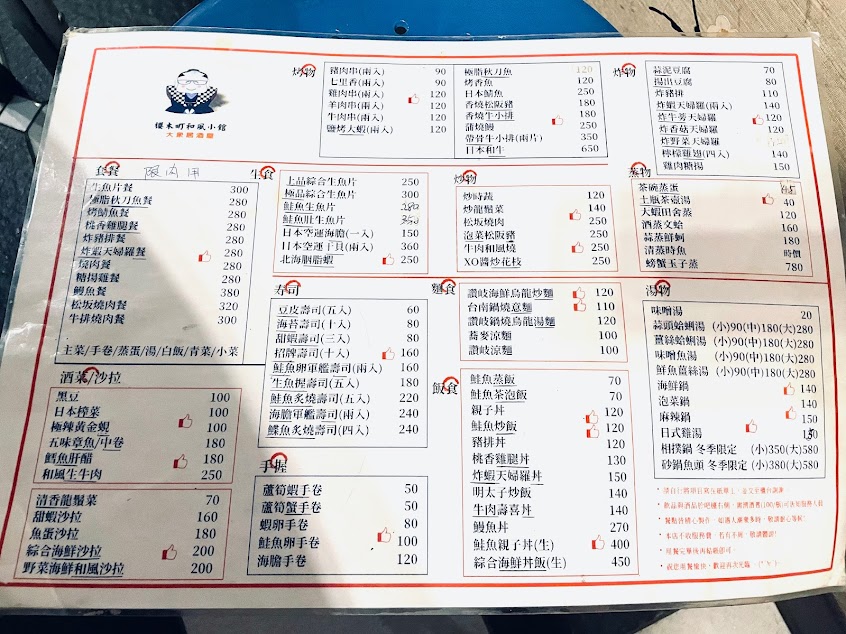 優木町和風小館
大眾居酒屋
烤物
豬肉串(兩入) 90
七里香(兩入) 90
雞肉串(兩入) 120
羊肉串(兩入) 120
牛肉串(兩入) 120
鹽烤大蝦(兩入) 120
極脂秋刀魚 120
烤香魚 120
日本鯖魚 250
香燒松阪豬 180
香燒牛小排 180
蒲燒鰻 250
帶骨牛小排(兩片) 350
日本和牛 650
炸物
蒜泥豆腐 70
揚出豆腐 80
炸豬排 110
炸蝦天婦羅(兩入) 140
炸牛蒡天婦羅 120
炸香菇天婦羅 120
炸野菜天婦羅
檸檬雞翅(四入) 140
雞肉糖揚 150
套餐 限內用
生魚片餐 300
極脂秋刀魚餐 280
烤鯖魚餐 280
桃香雞腿餐 280
炸豬排餐 280
炸蝦天婦羅餐 280
燒肉餐 280
糖揚雞餐 280
鰻魚餐 380
松坂燒肉餐 320
牛排燒肉餐 300
主菜/手卷/蒸蛋/湯/白飯/青菜/小菜
生食
上品綜合生魚片 250
極品綜合生魚片 300
鮭魚生魚片 280
鮭魚肚生魚片 350
日本空運海膽(一入) 150
日本空運干貝(兩入) 360
北海胭脂蝦 250
炒物
炒時蔬 120
炒龍鬚菜 140
松坂燒肉 250
泡菜松阪豬 250
牛肉和風燒 250
XO醬炒花枝 250
蒸物
茶碗蒸蛋
土瓶茶壺湯 40
大蝦田舍蒸 120
酒蒸文蛤 160
蒜蒸鮮蚵 180
清蒸時魚 時價
螃蟹玉子蒸 780
壽司
豆皮壽司(五入) 60
海苔壽司(十入) 80
甜蝦壽司(三入) 80
招牌壽司(十入) 160
鮭魚卵軍艦壽司(兩入) 160
生魚握壽司(五入) 180
鮭魚炙燒壽司(五入) 220
海膽軍艦壽司(兩入) 240
鰈魚炙燒壽司(四入) 240
麵食
讚岐海鮮烏龍炒麵 120
台南鍋燒意麵 110
讚岐鍋燒烏龍湯麵 120
蕎麥涼麵 100
讚岐涼麵 100
湯物
味噌湯 20
蒜頭蛤蜊湯 (小)90(中)180(大)280
薑絲蛤蜊湯 (小)90(中)180(大)280
味噌魚湯 (小)90(中)180(大)280
鮮魚薑絲湯 (小)90(中)180(大)280
海鮮鍋 140
泡菜鍋 140
麻辣鍋 150
日式雞湯
相撲鍋 冬季限定 (小)350(大)580
砂鍋魚頭 冬季限定 (小)380(大)580
酒菜/沙拉
黑豆 100
日本榨菜 100
極辣黃金蜆 100
五味章魚/中卷 180
鱈魚肝醋 180
和風生牛肉 250
清香龍鬚菜 70
甜蝦沙拉 160
魚蛋沙拉 180
綜合海鮮沙拉 200
野菜海鮮和風沙拉 200
手握
蘆筍蝦手卷 50
蘆筍蟹手卷 50
蝦卵手卷 80
鮭魚卵手卷 100
海膽手卷 120
飯食
鮭魚蒸飯 70
鮭魚茶泡飯 70
親子丼 120
鮭魚炒飯 120
豬排丼 120
桃香雞腿丼 130
炸蝦天婦羅丼 150
明太子炒飯 140
牛肉壽喜丼 140
鰻魚丼 270
鮭魚親子丼(生) 400
綜合海鮮丼飯(生) 450